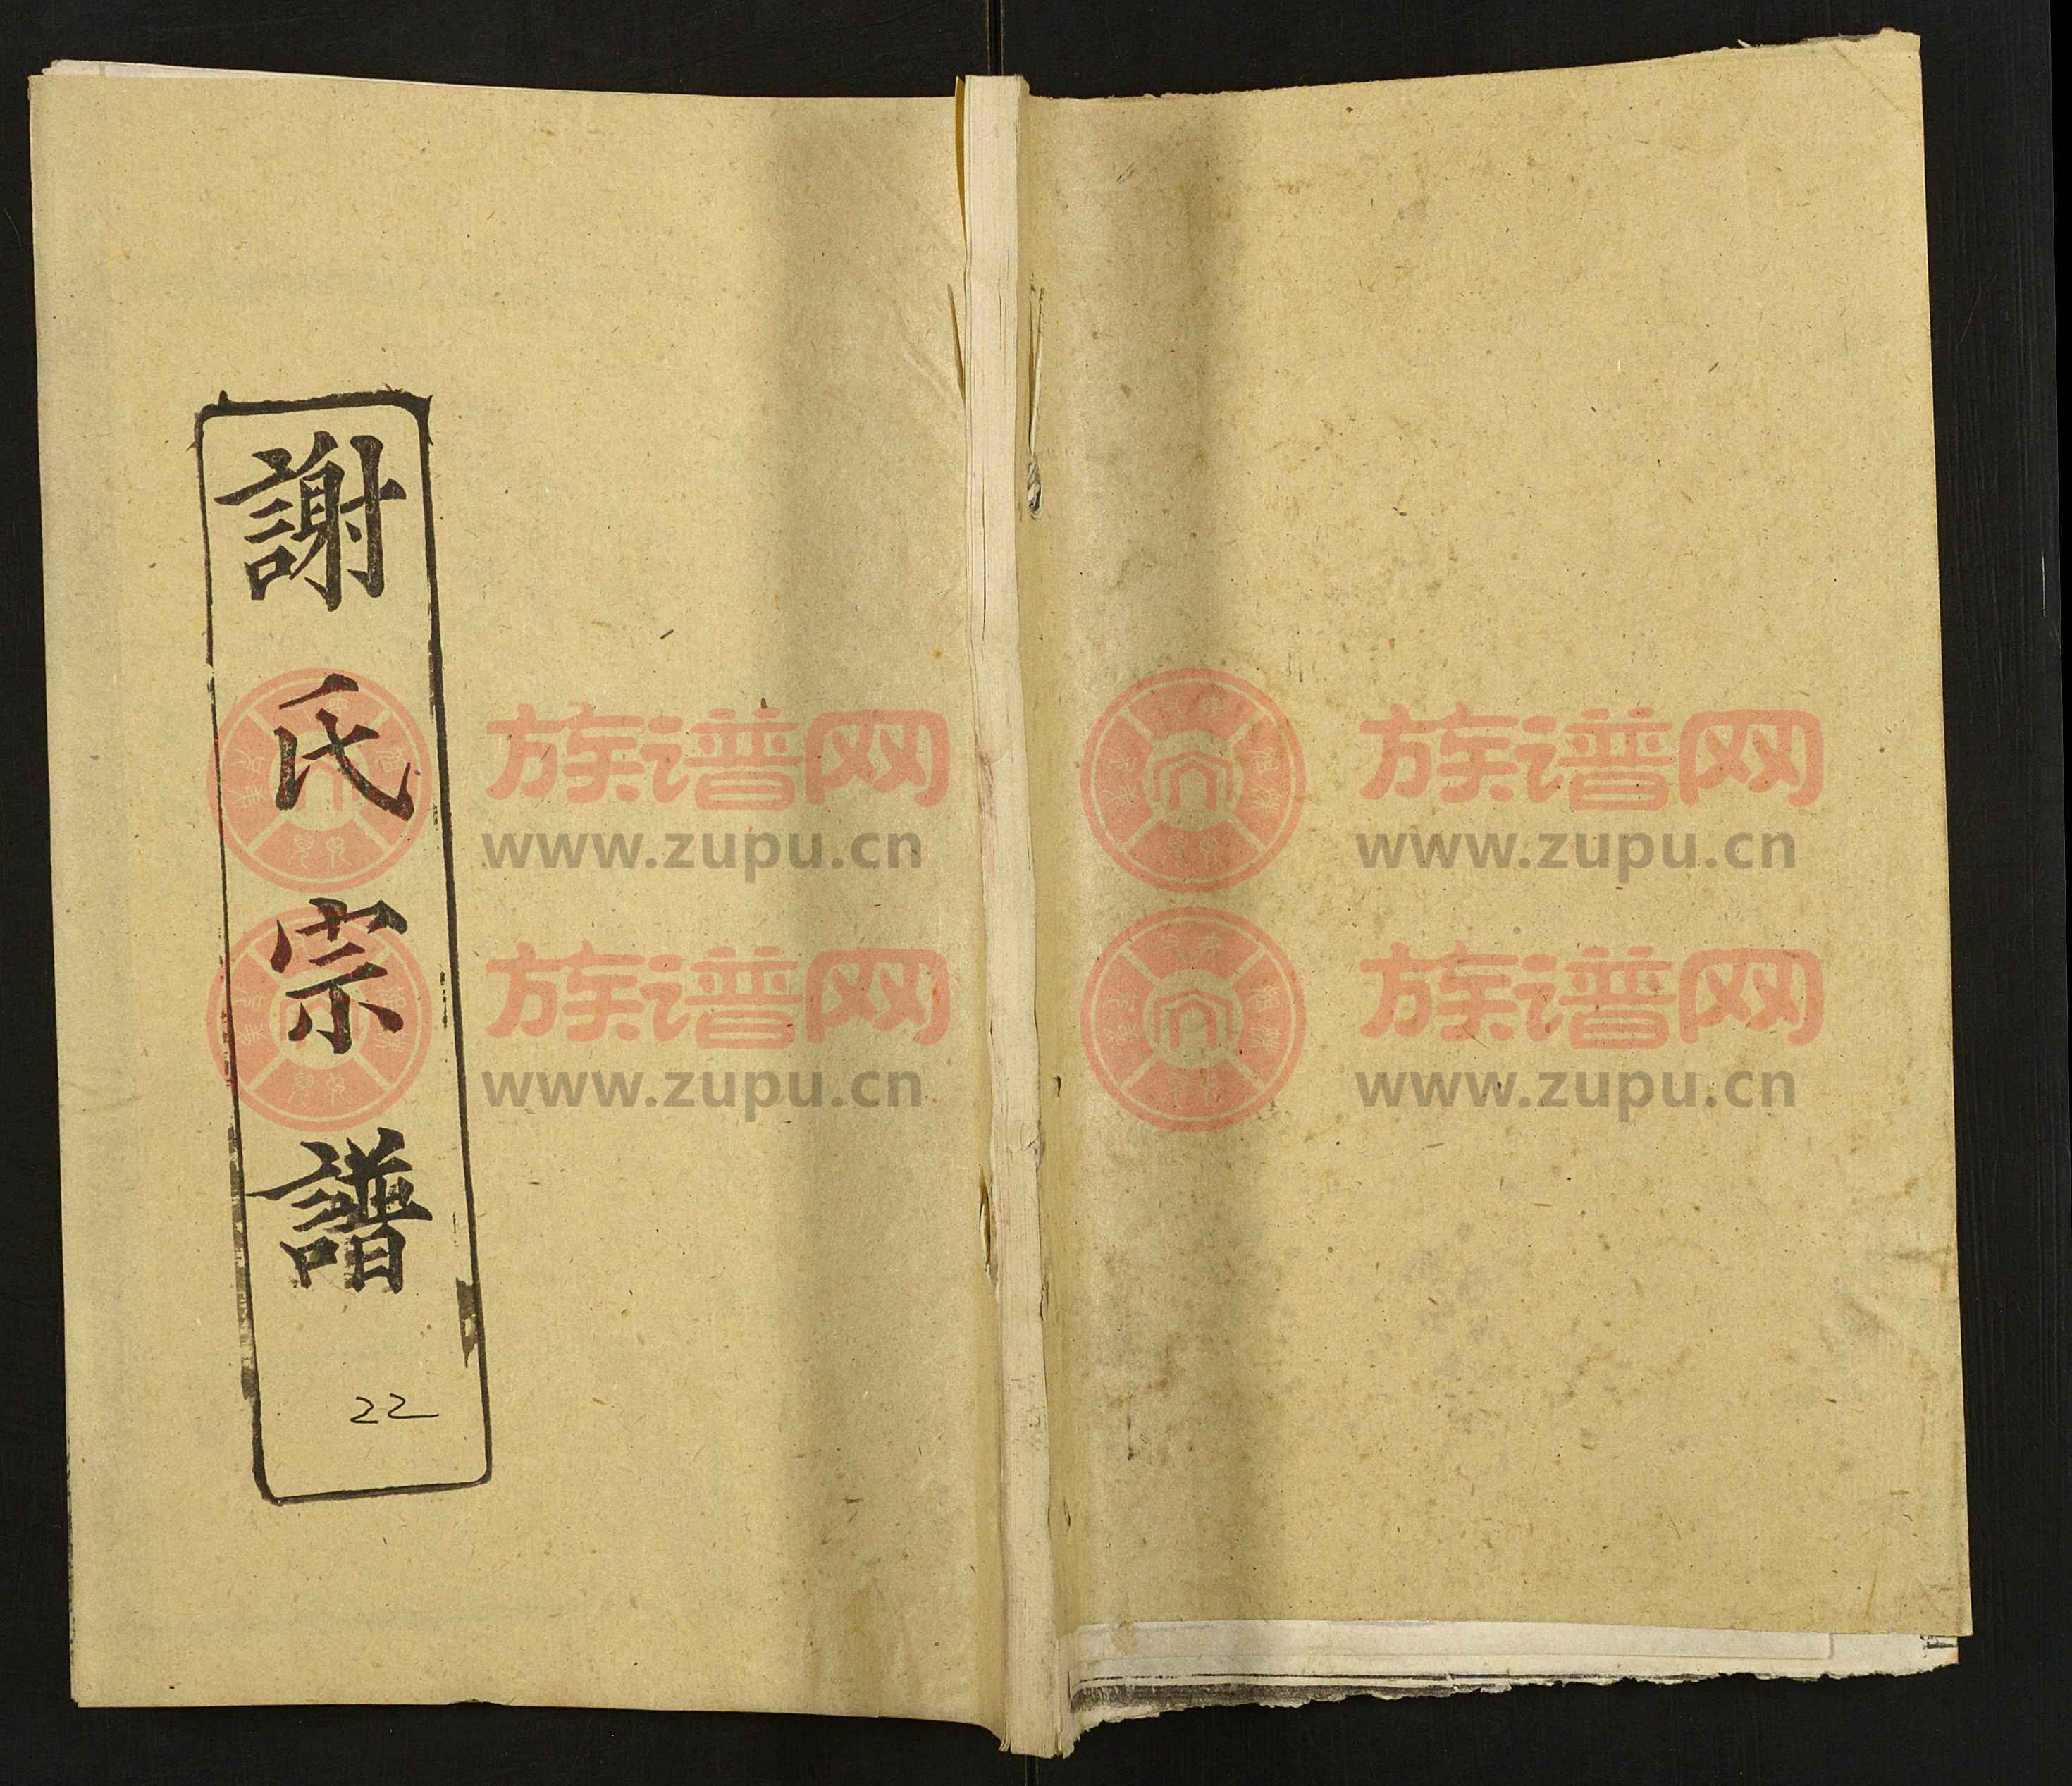 謝氏宗譜
22
族谱网
www.zupu.cn
族谱网
www.zupu.cn
族谱网
www.zupu.cn
族谱网
www.zupu.cn